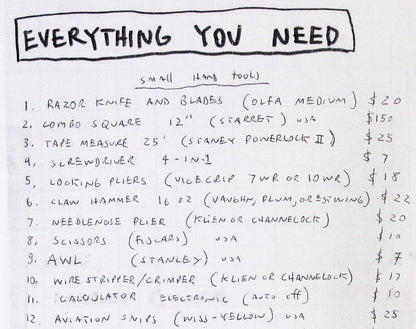 EVERYTHING YOU NEED
SMALL HAND TOOLS
1. RAZOR KNIFE AND BLADES (OLFA MEDIUM) $20
2. COMBO SQUARE 12" (STARRET) USA $150
3. TAPE MEASURE 25' (STANEY POWERLOCK II) $25
4. SCREWDRIVER 4-IN-1 $7
5. LOCKING PLIERS (VICEGRIP 7WR OR 10WR) $18
6. CLAW HAMMER 16 OZ (VAUGHN, PLUM, OR ESTWING) $22
7. NEEDLENOSE PLIER (KLIEN OR CHANNELOCK) $20
8. SCISSORS (FISCARS) USA $10
9. AWL (STANLEY) USA $7
10. WIRE STRIPPER/CRIMPER (KLIEN OR CHANNELOCK) $17
11. CALCULATOR ELECTRONIC (AUTO OFF) $10
12. AVIATION SNIPS (WISS-YELLOW) USA $25